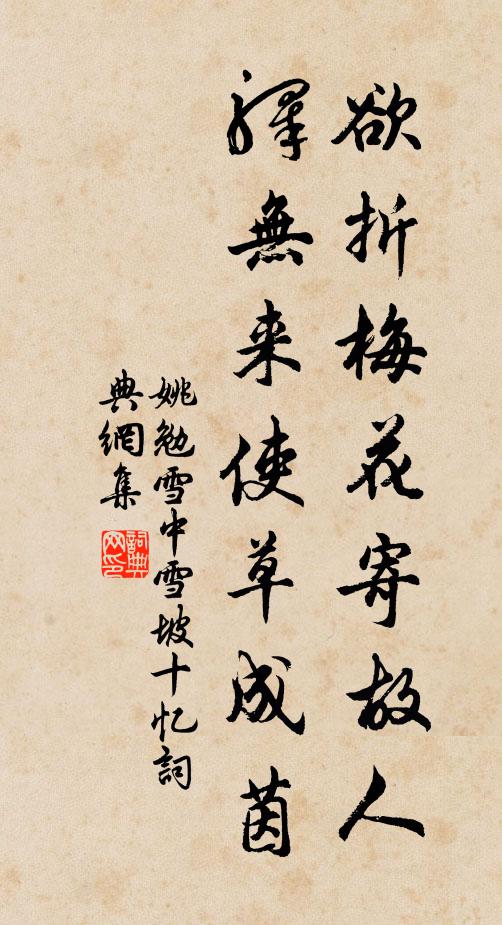 欲折梅花寄故人
驛無来使草成茵
姚勉雪中雪坡十忆詞
典網集
詞典网印